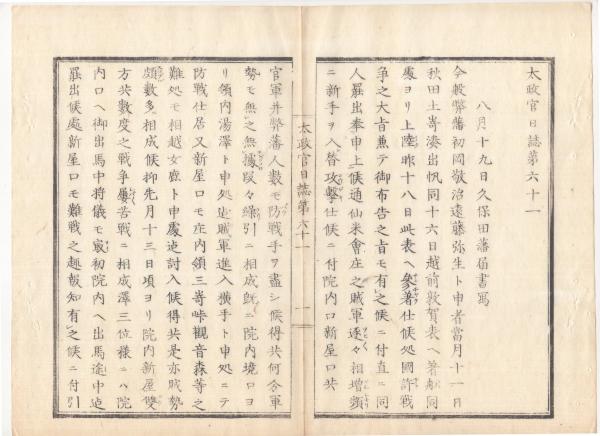 太政官日誌第六十一
八月十九日久保田藩届書写
今般弊藩初岡敬治遠藤弥生ト申者當月十一日
秋田土嵜湊出帆同十六日越前敦賀表へ着献同
處ヨリ上陸昨十八日此表へ參著仕候処國許戦
争之大㫖兼テ御布告之㫖モ有之候ニ付直ニ同
人罷出奉申上候通仙米會庄之賊軍逐々相増頻
ニ新手ヲ入替攻擊仕候ニ付院内口新屋口共
太政官日誌第六十一 一
官軍并弊藩人數モ防戦手ヲ盡シ候得共何分軍
勢モ無之無據段々繰引ニ相成旣ニ院内境口ヨ
リ領内湯澤ト申処迠賊軍進入横手ト申処ニテ
防戦仕居又新屋口モ庄内領三嵜峠觀音森等之
難処モ相越女鹿ト申處迠討入候得共是亦賊勢
頗數多相成候抑先月十三日頃ヨリ院内新屋雙
方共數度之戦争屢苦戦ニ相成澤三位様ニハ院
内口へ御出馬中将儀モ最初院内へ出馬途中迠
罷出候處新屋口モ難戦之趣報知有之候ニ付引